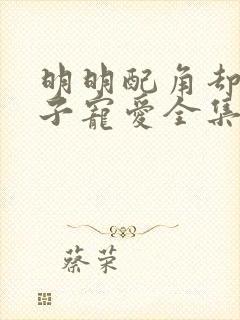 明明配角却
子宠爱全集
蔡荣